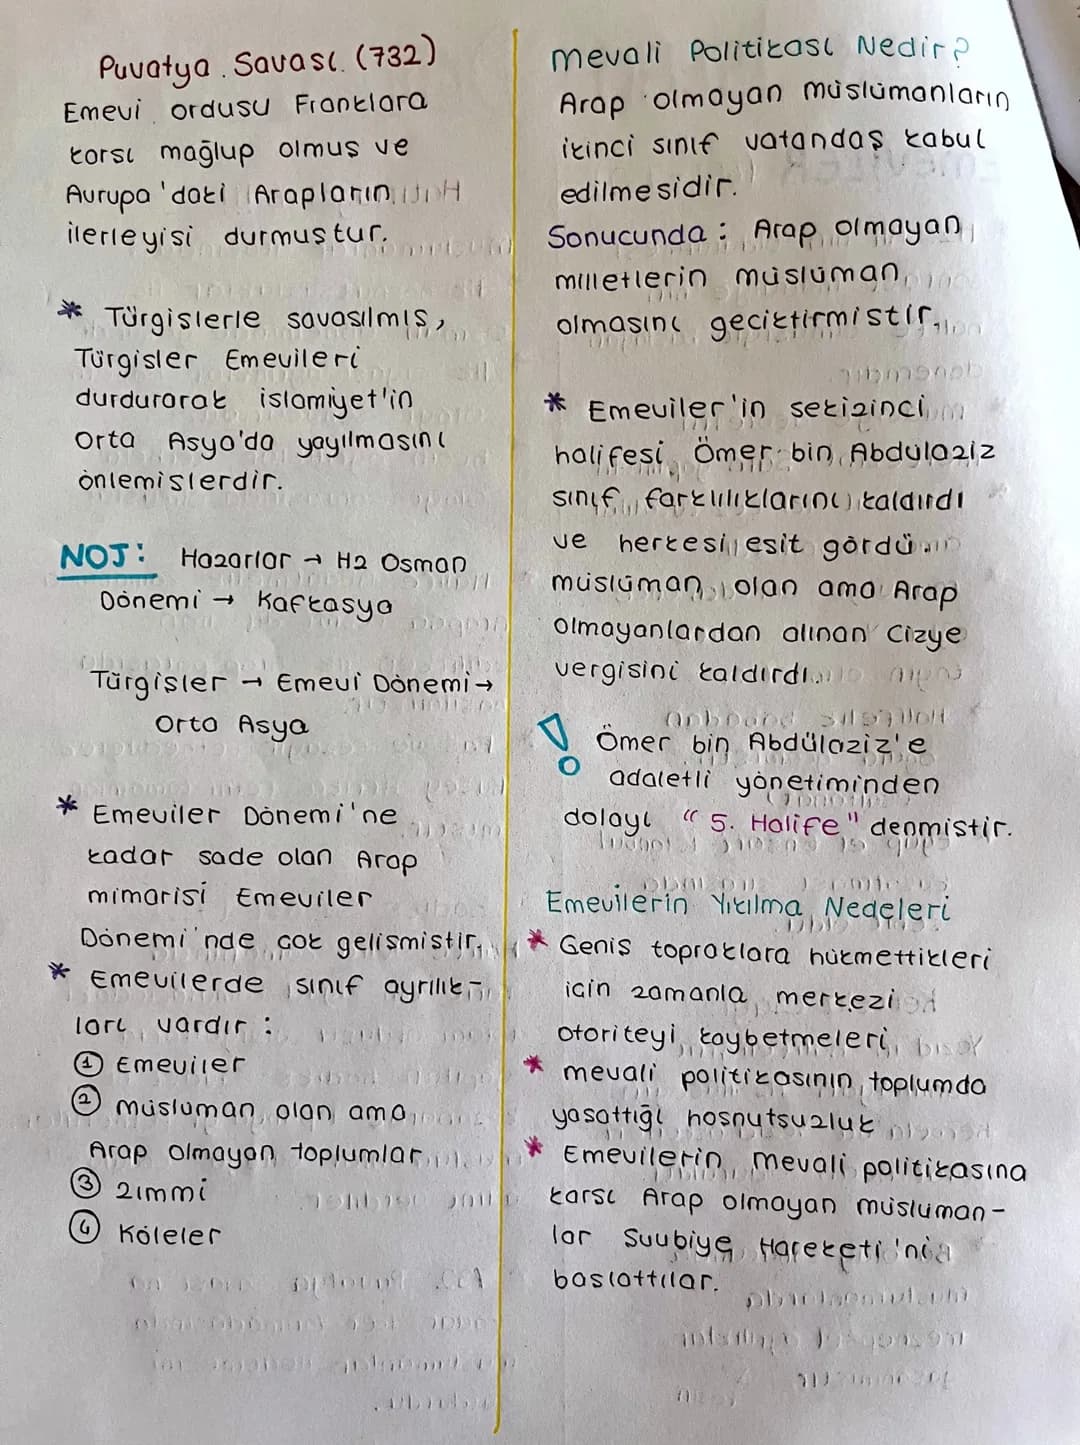 Puvatya Savası (732)
Emevi ordusu Franklara
karsı mağlup olmuş ve
Avrupa'daki Arapların
ilerleyisi durmuştur.
* Türgislerle savasılmıs,
Türgisler Emevileri
durdurarak islamiyet'in
Orta Asya'da yayılmasını
önlemislerdir.
NOT: Hazarlar → Hz Osman
Dönemi → Kafkasya
Türgişler → Emevi Dönemi→
Orta Asya
* Emeviler Dönemi'ne
kadar sade olan Arap
mimarisi Emeviler
Dönemi'nde çok gelismistir.
* Emevilerde sınıf ayrılık-
ları vardır:
① Emeviler
② müsluman olan ama
Arap olmayan toplumlar
③ zımmi
④ Köleler
mevali Politikası Nedir?
Arap olmayan müslümanların
ikinci sınıf vatandaş kabul
edilmesidir.
Sonucunda: Arap olmayan
milletlerin müslüman
olmasını geciktirmistir.
* Emeviler'in sekizinci
halifesi Ömer bin Abdülaziz
sınıf farklılıklarını kaldırdı
ve herkesi esit gördü.
müslüman olan ama Arap
olmayanlardan alınan Cizye
vergisini kaldırdı.
! Ömer bin Abdülaziz'e
adaletli yönetiminden
dolayı "5. Halife" denmistir.
Emevilerin Yıkılma Nedeleri
* Geniş topraklara hükmettikleri
için zamanla merkezi
otoriteyi kaybetmeleri
* mevali politikasının toplumda
yasattığı hosnutsuzluk
* Emevilerin mevali politikasına
karsı Arap olmayan müsluman-
lar Suubiye Hareketi'ni
baslattılar.